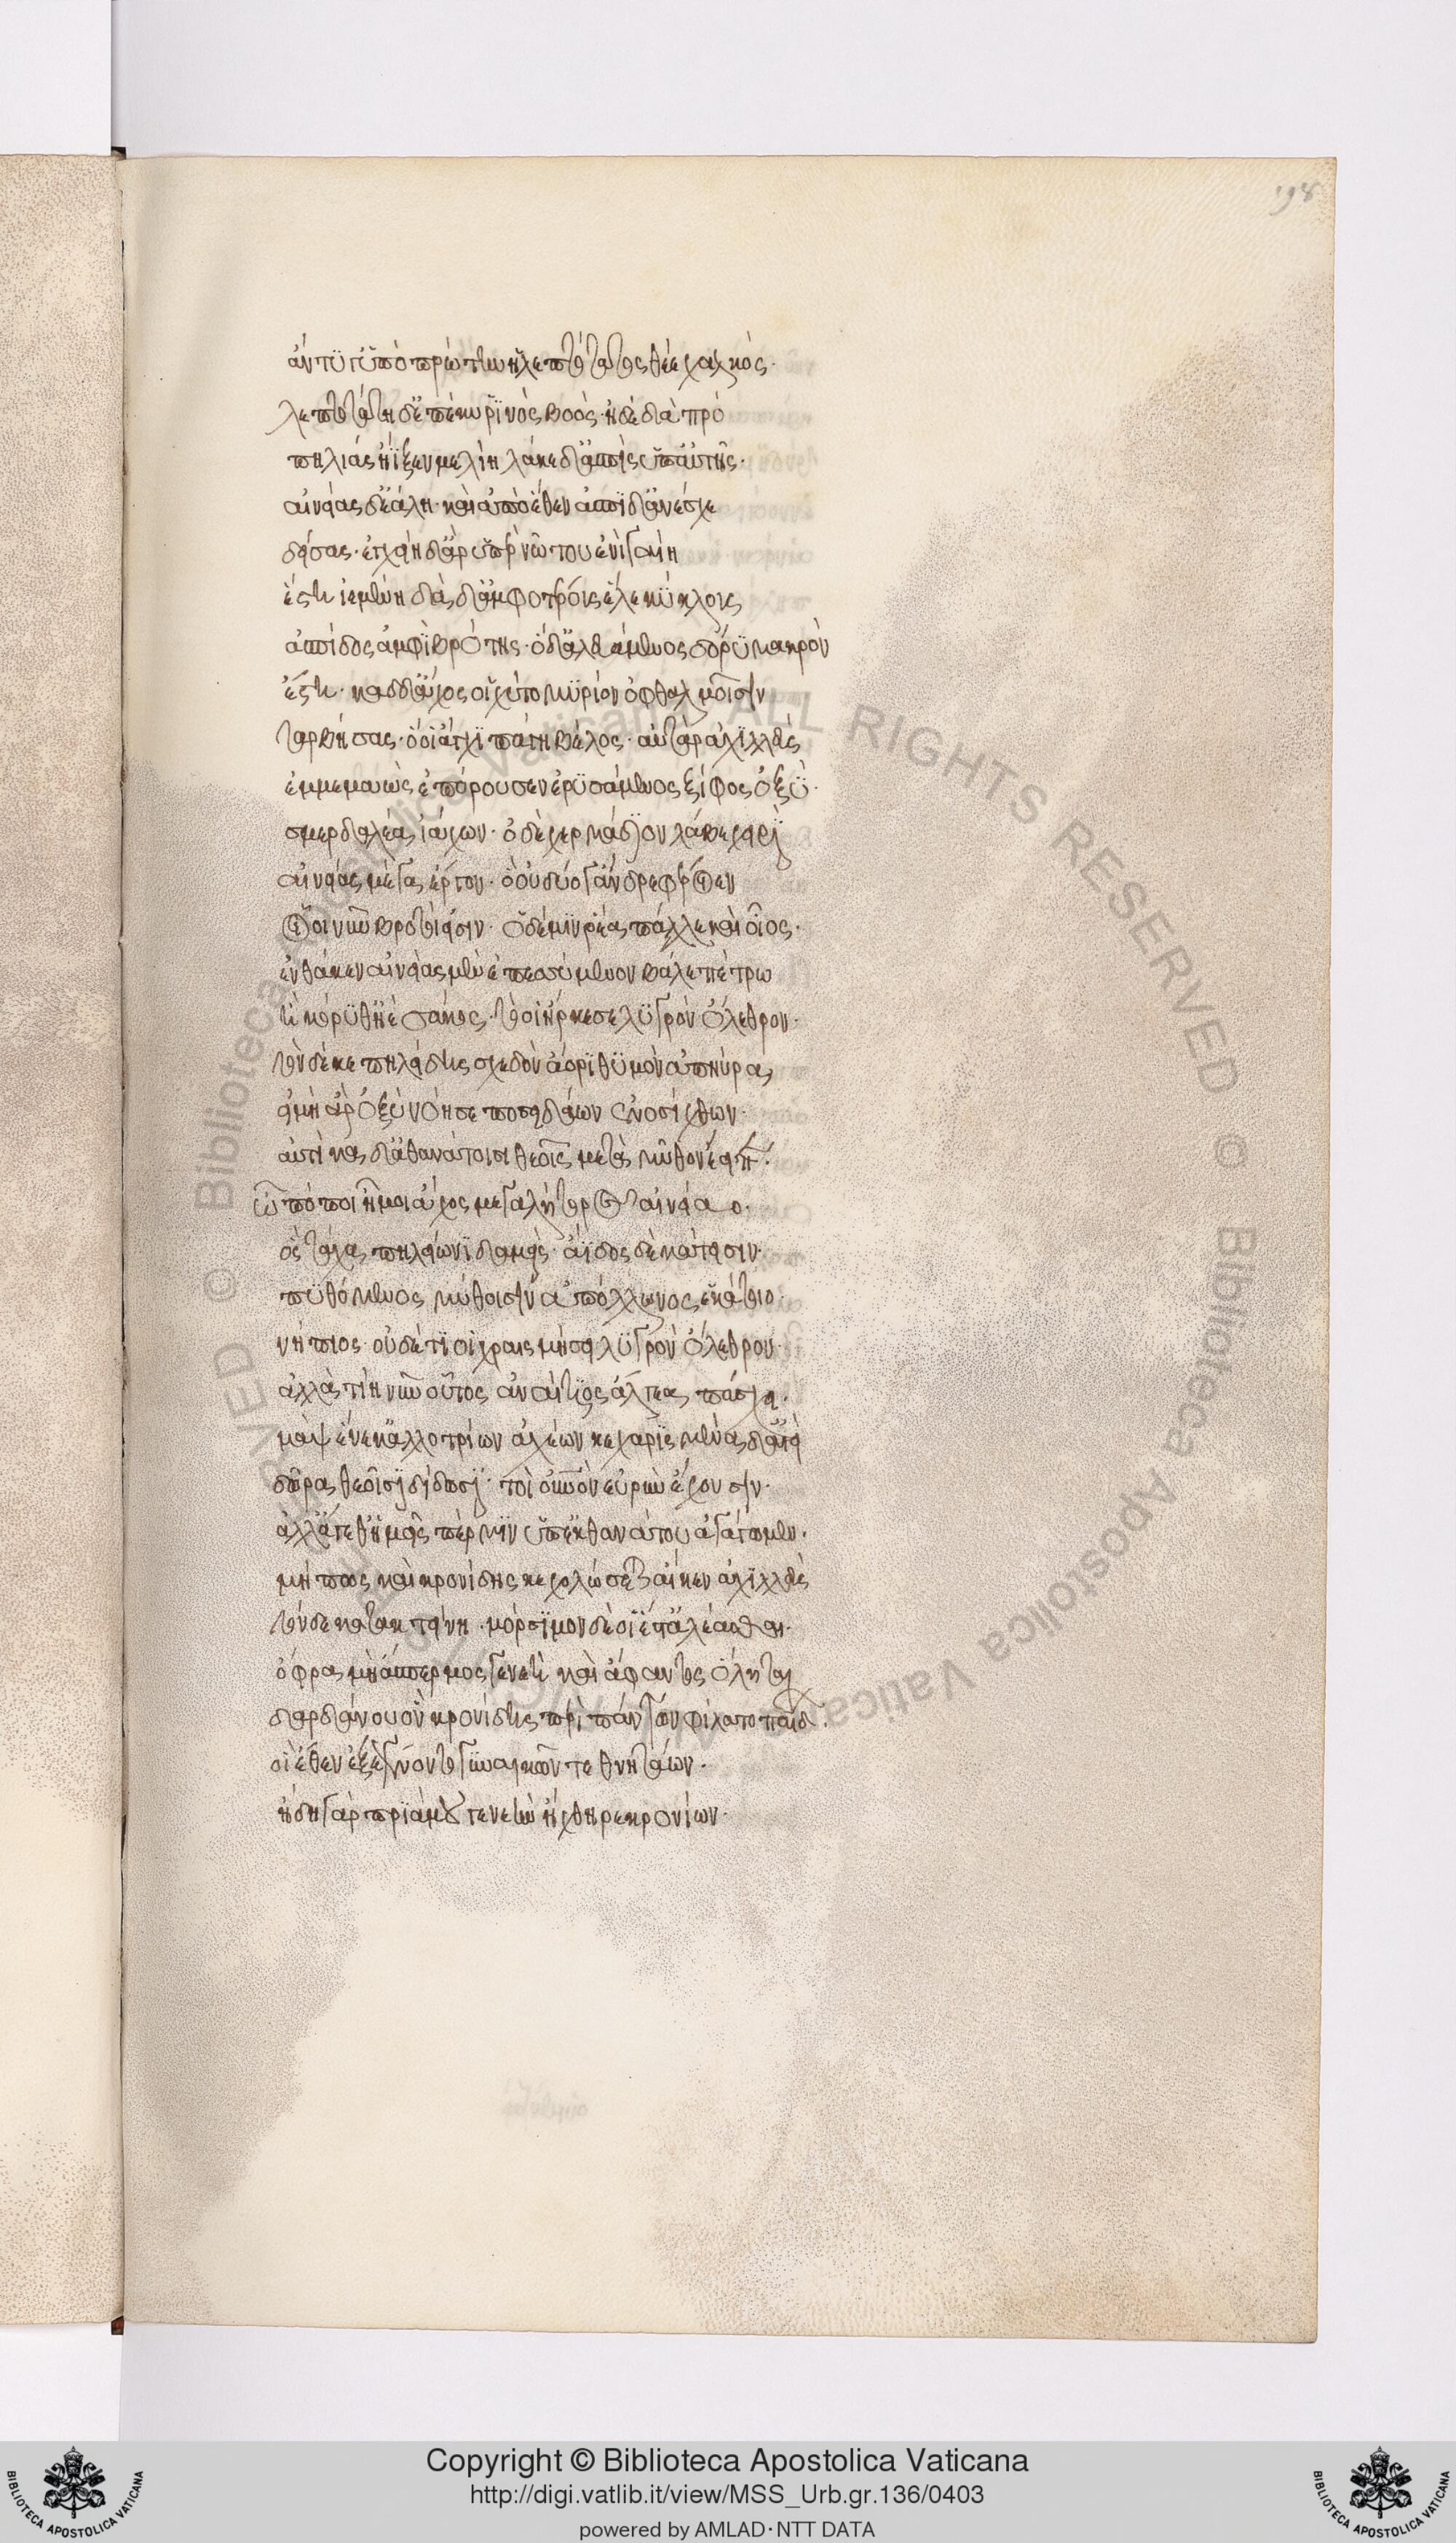 198
ἄντυγ' ὕπο πρώτην ᾗ λεπτότατος θέε χαλκός·
λεπτοτάτη δ' ἐπέην ῥινὸς βοός· ἡ δὲ διὰ πρό
πηλιὰς ἤϊξεν μελίη λάκε δ' ἀσπὶς ὑπ' αὐτῆς·
αἰνείας δ' ἐάλη· καὶ ἀπὸ ἕθεν ἀσπίδ' ἀνέσχε
δείσας· ἐγχείη δ' ἂρ ὑπὲρ νώτου ἐνὶ γαίη
ἔστη ἱεμένη διὰ δ' ἀμφοτέρους ἕλε κύκλους
ἀσπίδος ἀμφιβρότης· ὁ δ' ἀλευάμενος δόρυ μακρὸν
ἔστη· καδδ' ἄχος οἱ χύτο μυρίον ὀφθαλμοῖσιν
ταρβήσας· ὅ οἱ ἄγχι πάγη βέλος· αὐτὰρ ἀχιλλεὺς
ἐμμεμαὼς ἐπόρουσεν ἐρυσάμενος ξίφος ὀξύ·
σμερδαλέα ἰάχων· ὁ δὲ χερμάδιον λάβε χειρὶ
αἰνείας μέγα ἔργον· ὃ οὐ δύο γ' ἄνδρε φέροιεν
οἷοι νῦν βροτοί εἰσιν· ὁ δέ μιν ῥέα πάλλε καὶ οἶος·
ἔνθά κεν αἰνείας μὲν ἐπεσσύμενον βάλε πέτρω
ἢ κόρυθ' ἠὲ σάκος· τό οἱ ἤρκεσε λυγρὸν ὄλεθρον·
τὸν δέ κε πηλείδης σχεδὸν ἄορι θυμὸν ἀπηύρα
εἰ μὴ ἄρ' ὀξὺ νόησε ποσειδάων ἐνοσίχθων·
αὐτίκα δ' ἀθανάτοισι θεοῖς μετὰ μῦθον ἔειπε·
ὢ πόποι ἦ μοι ἄχος μεγαλήτορος αἰνείαο·
ὃς τάχα πηλείωνι δαμεὶς ἄϊδος δὲ κάτεισιν·
πυθόμενος μύθοισιν ἀπόλλωνος ἑκάτοιο·
νήπιος· οὐδέ τι οἱ χραισμήσει λυγρὸν ὄλεθρον·
ἀλλὰ τίη νῦν οὗτος ἀναίτιος ἄλγεα πάσχει·
μὰψ ἕνεκ' ἀλλοτρίων ἀχέων κεχαρισμένα δ' αἰεὶ
δῶρα θεοῖσι δίδωσι· τοὶ οὐρανὸν εὐρὺν ἔχουσιν·
ἀλλ' ἄγεθ' ἡμεῖς πέρ μιν ὑπ' ἐκ θανάτου ἀγάγωμεν·
μή πως καὶ κρονίδης κεχολώσεται αἴ κεν ἀχιλλεὺς
τόνδε κατακτείνη· μόρσιμον δέ οἱ ἔστ' ἀλέασθαι·
ὄφρα μὴ ἄσπερμος γενεὴ καὶ ἄφαντος ὄληται
δαρδάνου ὃν κρονίδης περὶ πάντων φίλατο παίδων·
οἳ ἕθεν ἐξεγένοντο γυναικῶν τε θνητάων·
ἤδη γὰρ πριάμου γενεὴν ἤχθηρε κρονίων·
© Biblioteca Apostolica Vaticana ALL RIGHTS RESERVED © Biblioteca Apostolica Vaticana
Copyright © Biblioteca Apostolica Vaticana
http://digi.vatlib.it/view/MSS_Urb.gr.136/0403
powered by AMLAD·NTT DATA
BIBLIOTECA APOSTOLICA VATICANA
BIBLIOTECA APOSTOLICA VATICANA